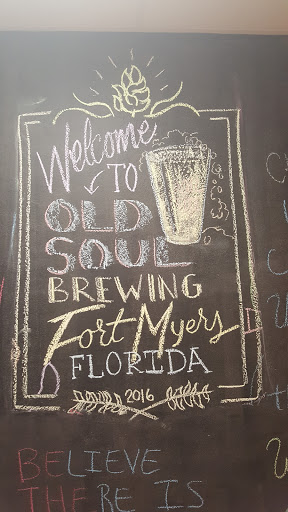 Welcome
TO
OLD
SOUL
BREWING
Fort Myers
FLORIDA
2016
BELIEVE
THERE IS